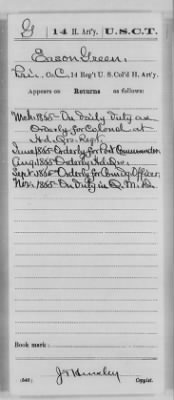 G 14 H. Art'y. U.S.C.T.
Eason Green.
Pvt., Co. C, 14 Reg't U.S. Col'd H. Art'y.
Appears on
Returns as follows:
Mch 1865 - On daily duty as
Orderly for Colonel at
Hd. Qrs. Regt.
June 1865 - Orderly for Post Commander
Aug. 1865 - Orderly Hd. Qrs.
Sept. 1865 - Orderly for Com'dg Officer
Nov. 1865 - On duty in Q. M. De
Book mark:
(546)
Copyist.